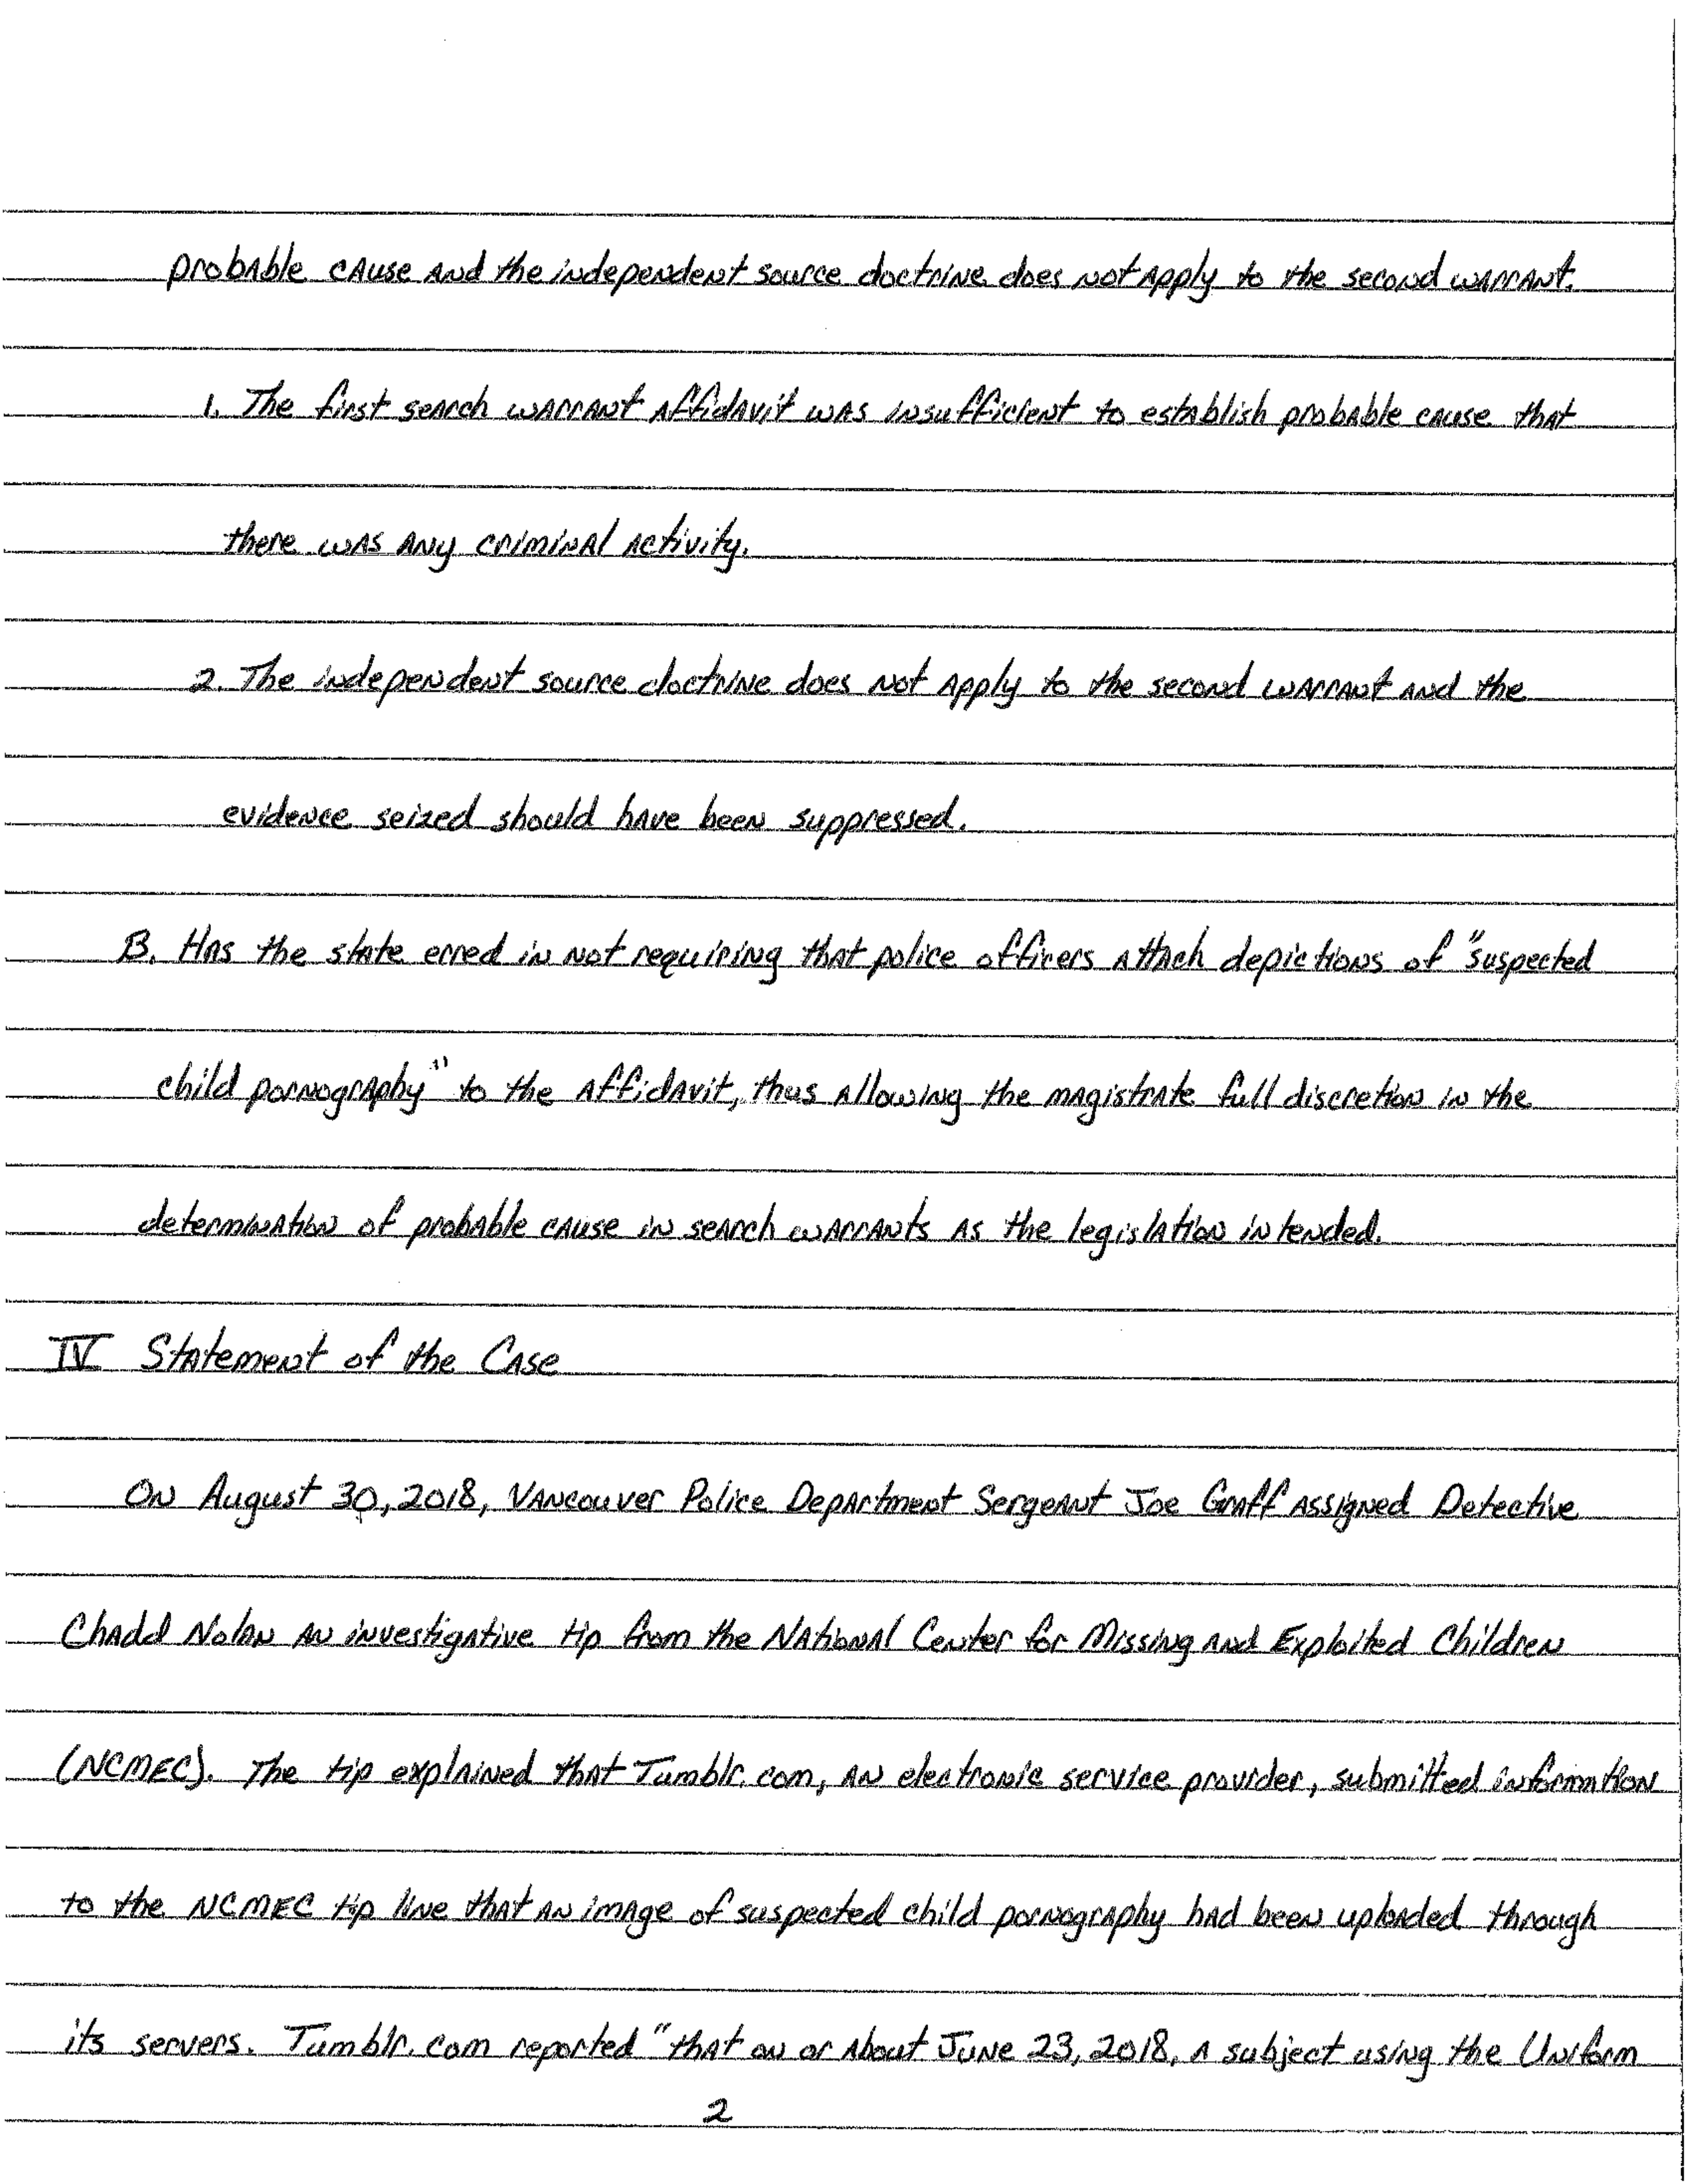 probable cause and the independent source doctrine does not apply to the second warrant.
1. The first search warrant affidavit was insufficient to establish probable cause that
there was any criminal activity.
2. The independent source doctrine does not apply to the second warrant and the
evidence seized should have been suppressed.
B. Has the state erred in not requiring that police officers attach depictions of "suspected
child pornography" to the affidavit, thus allowing the magistrate full discretion in the
determination of probable cause in search warrants as the legislation intended.
IV Statement of the Case
On August 30, 2018, Vancouver Police Department Sergeant Joe Graff assigned Detective
Chadd Nolan an investigative tip from the National Center for Missing and Exploited Children
(NCMEC). The tip explained that Tumblr.com, an electronic service provider, submitted information
to the NCMEC tip line that an image of suspected child pornography had been uploaded through
its servers. Tumblr.com reported "that on or about June 23, 2018, a subject using the Uniform
2